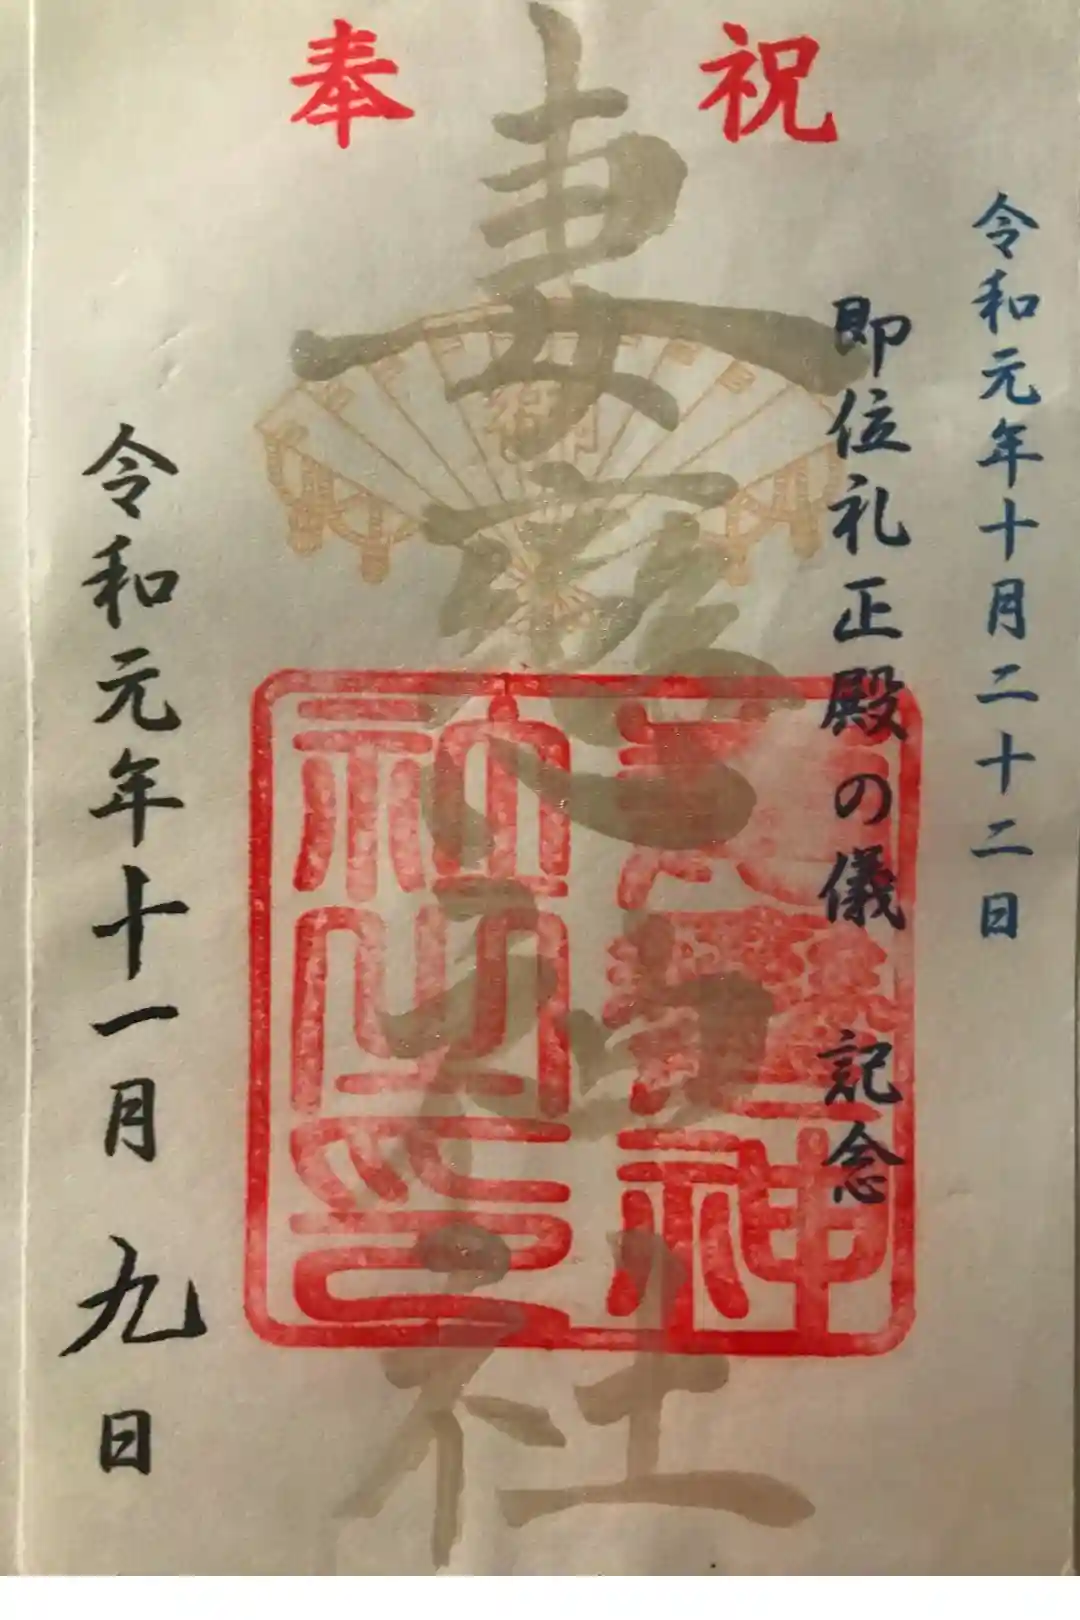 奉祝
令和元年十月二十二日
即位礼正殿の儀　記念
妻恋神社
妻戀神
社之印
令和元年十一月九日